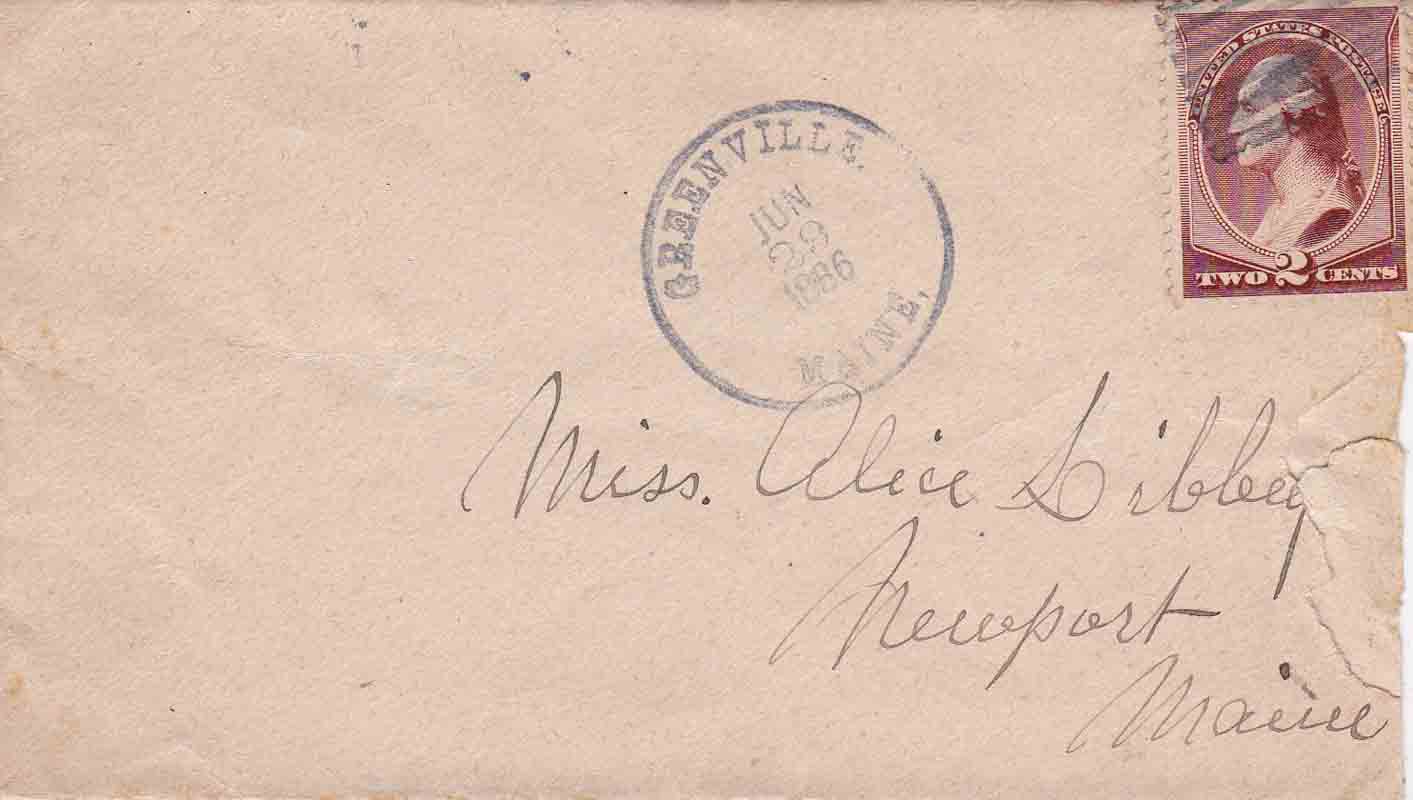 UNITED STATES POSTAGE
TWO 2 CENTS
GREENVILLE.
JUN
1886
MAINE,
Miss. Alice Libbey
Newport
Maine